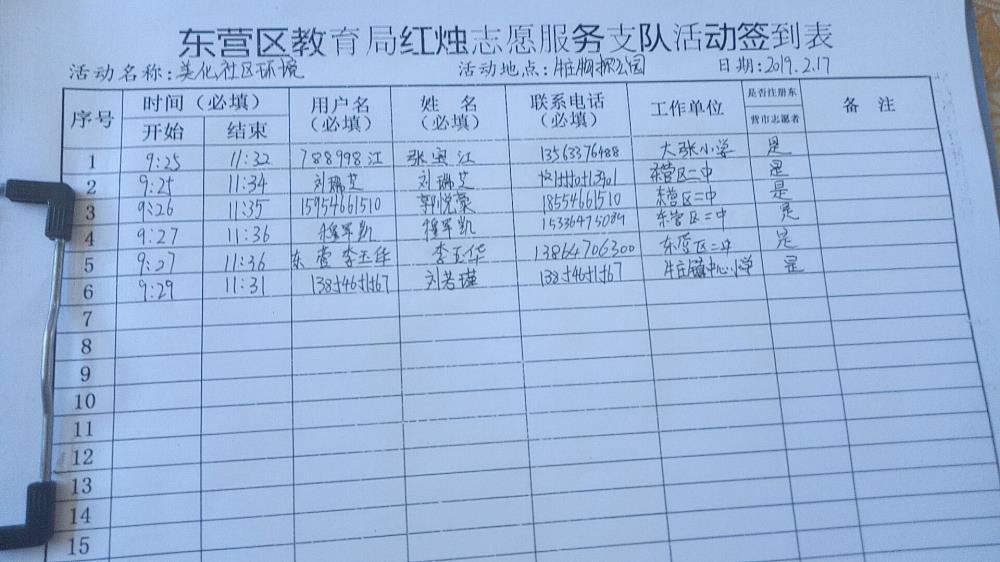 东营区教育局红烛志愿服务支队活动签到表
活动名称:美化社区环境 活动地点:牛庄物探公园 日期:2019.2.17
序号 时间(必填) 用户名(必填) 姓名(必填) 联系电话(必填) 工作单位 是否注册东营市志愿者 备注
开始 结束
1 9:25 11:32 788998江 张宝江 13563376488 大张小学 是
2 9:25 11:34 刘瑞芝 刘瑞芝 东营区二中 是
3 9:26 11:35 15954661510 郭悦蒙 18554661510 东营区二中 是
4 9:27 11:36 程军凯 程军凯 15336475084 东营区二中 是
5 9:27 11:36 东营李玉华 李玉华 13864706300 东营区二中 是
6 9:29 11:31 刘若瑾 牛庄镇中心小学 是
7
8
9
10
11
12
13
14
15